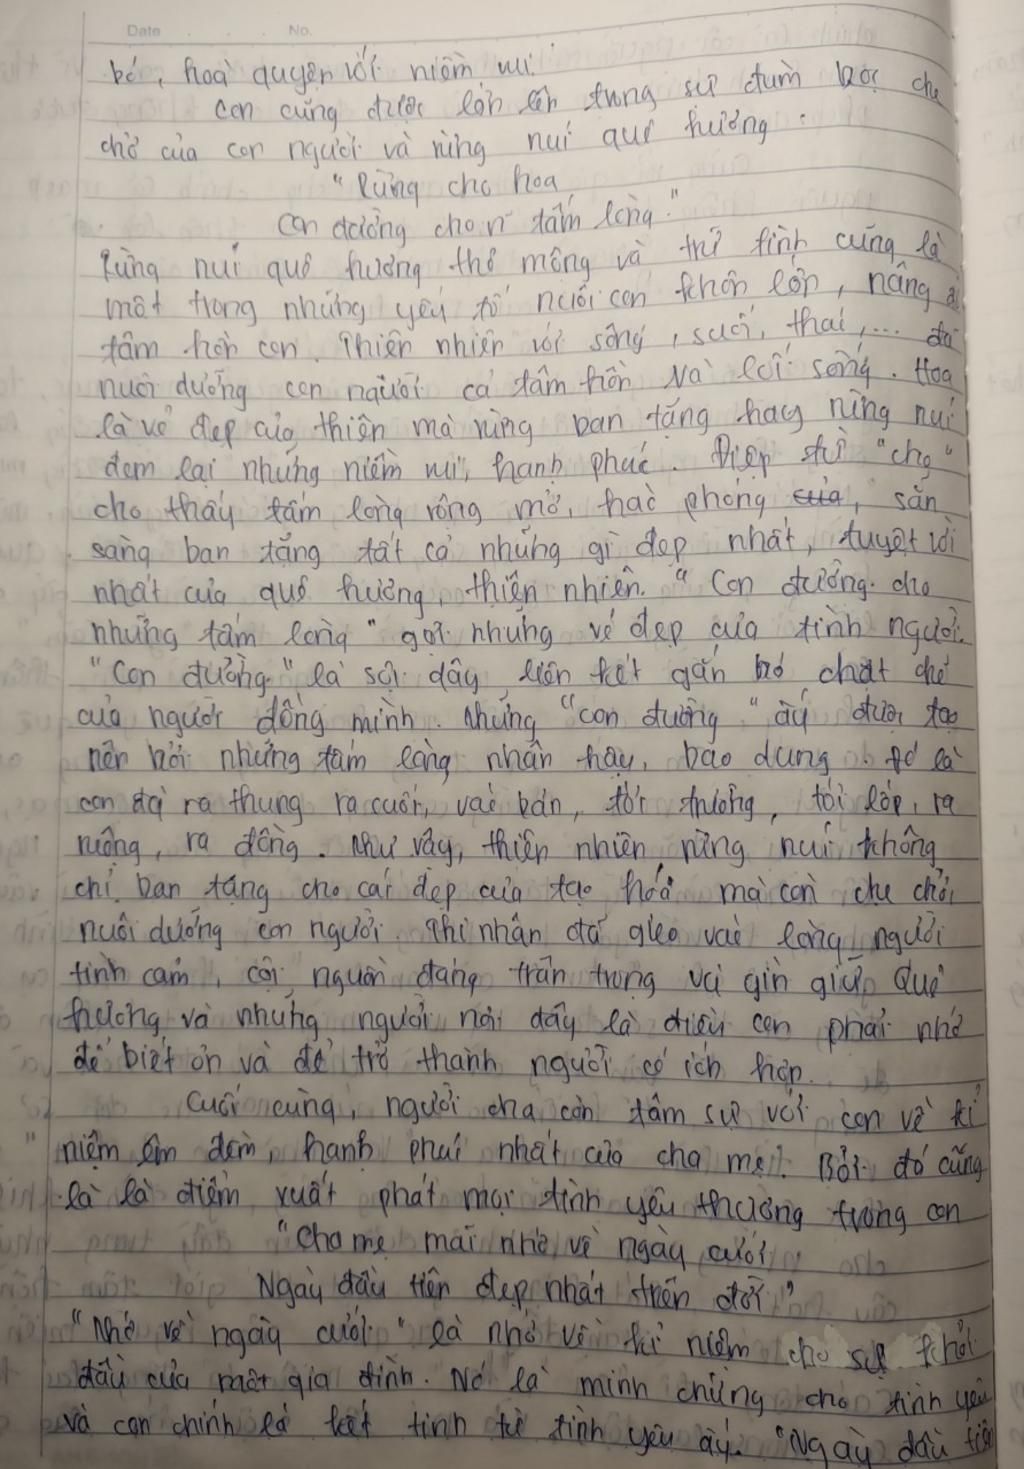 Date No.
bó, hoà quyện với niềm vui.
Con cũng được lớn lên trong sự đùm bọc che
chở của con người và rừng núi quê hương.
"Rừng cho hoa
Con đường cho n~ tấm lòng."
Rừng núi quê hương thơ mộng và trữ tình cũng là
một trong những yếu tố nuôi con khôn lớn, nâng
tâm hồn con. Thiên nhiên với sông, suối, thác,... đã
nuôi dưỡng con người cả tâm hồn và lối sống. Hoa
là vẻ đẹp của thiên mà rừng ban tặng hay rừng núi
đem lại những niềm vui, hạnh phúc. Điệp từ "cho"
cho thấy tấm lòng rộng mở, hào phóng của, sẵn
sàng ban tặng tất cả những gì đẹp nhất, tuyệt vời
nhất của quê hương, thiên nhiên. "Con đường cho
những tấm lòng" gợi những vẻ đẹp của tình người.
"Con đường" là sợi dây liên kết gắn bó chặt chẽ
của người đồng mình. Những "con đường" ấy được tạo
nên bởi những tấm lòng nhân hậu, bao dung. Đó là
con đg ra thung ra cuối, vào bản, tới trường, tới lớp, ra
ruộng, ra đồng. Như vậy, thiên nhiên rừng núi không
chỉ ban tặng cho cái đẹp của tạo hoá mà còn che chở,
nuôi dưỡng con người. Thi nhân đã gieo vào lòng người
tình cảm, cội nguồn đáng trân trọng và gìn giữ. Quê
hương và những người nơi đây là điều con phải nhớ
để biết ơn và để trở thành người có ích hơn.
Cuối cùng, người cha còn tâm sự với con về kỉ
niệm êm đềm, hạnh phúc nhất của cha mẹ. Bởi đó cũng
là là điểm xuất phát mọi tình yêu thương trong con
"Cha mẹ mãi nhớ về ngày cưới
Ngày đầu tiên đẹp nhất trên đời"
"Nhớ về ngày cưới" là nhớ về kỉ niệm cho sự khởi
đầu của một gia đình. Nó là minh chứng cho tình yêu
và con chính là kết tinh từ tình yêu ấy. "Ngày đầu tiên